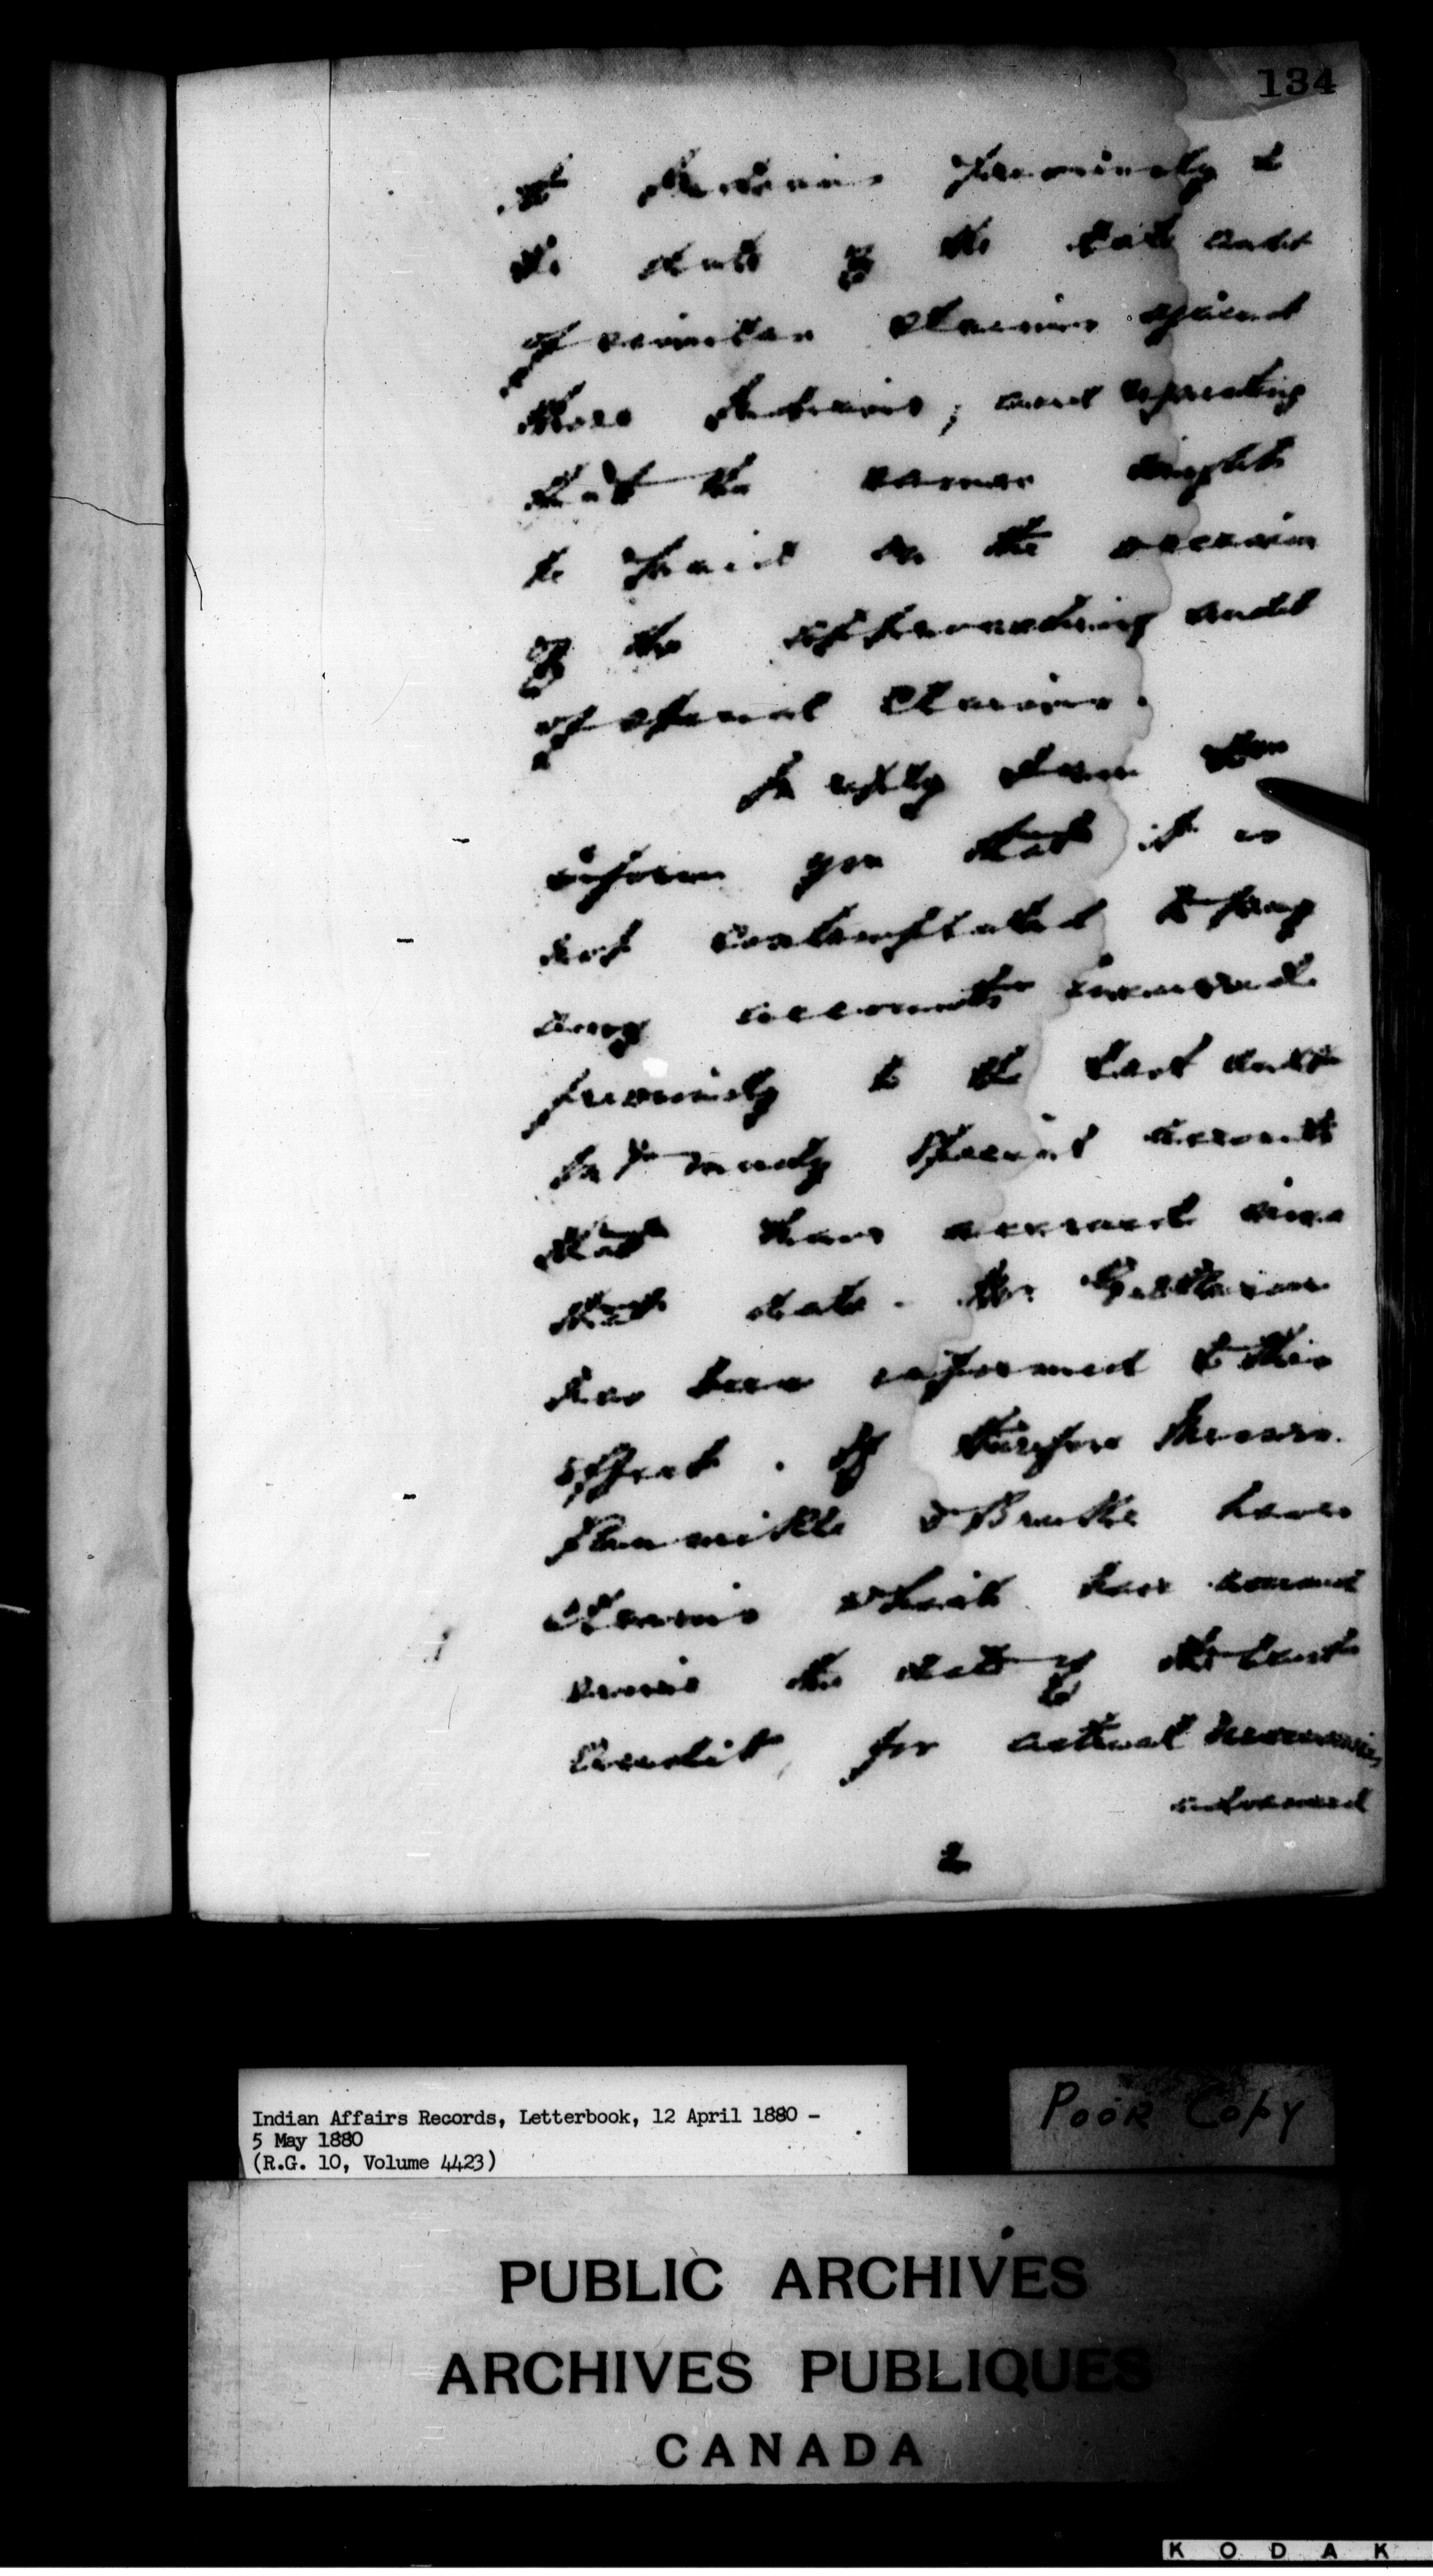 134
previously to
the date of the last audit
of similar claims against
those Indians; and
that the same might
be paid on the occasion
of the approaching audit
of special claims.
In reply I have to
inform you that it is
not contemplated to pay
any accounts incurred
previously to the last audit
but only special accounts
that have accrued since
that date. Mr.
has been informed to this
effect. If therefore Messrs.
& Brooke have
claims which have accrued
since the date of the last
audit, for actual necessaries
advanced
2
Indian Affairs Records, Letterbook, 12 April 1880 -
5 May 1880
(R.G. 10, Volume 4423)
Poor Copy
PUBLIC ARCHIVES
ARCHIVES PUBLIQUES
CANADA
KODAK